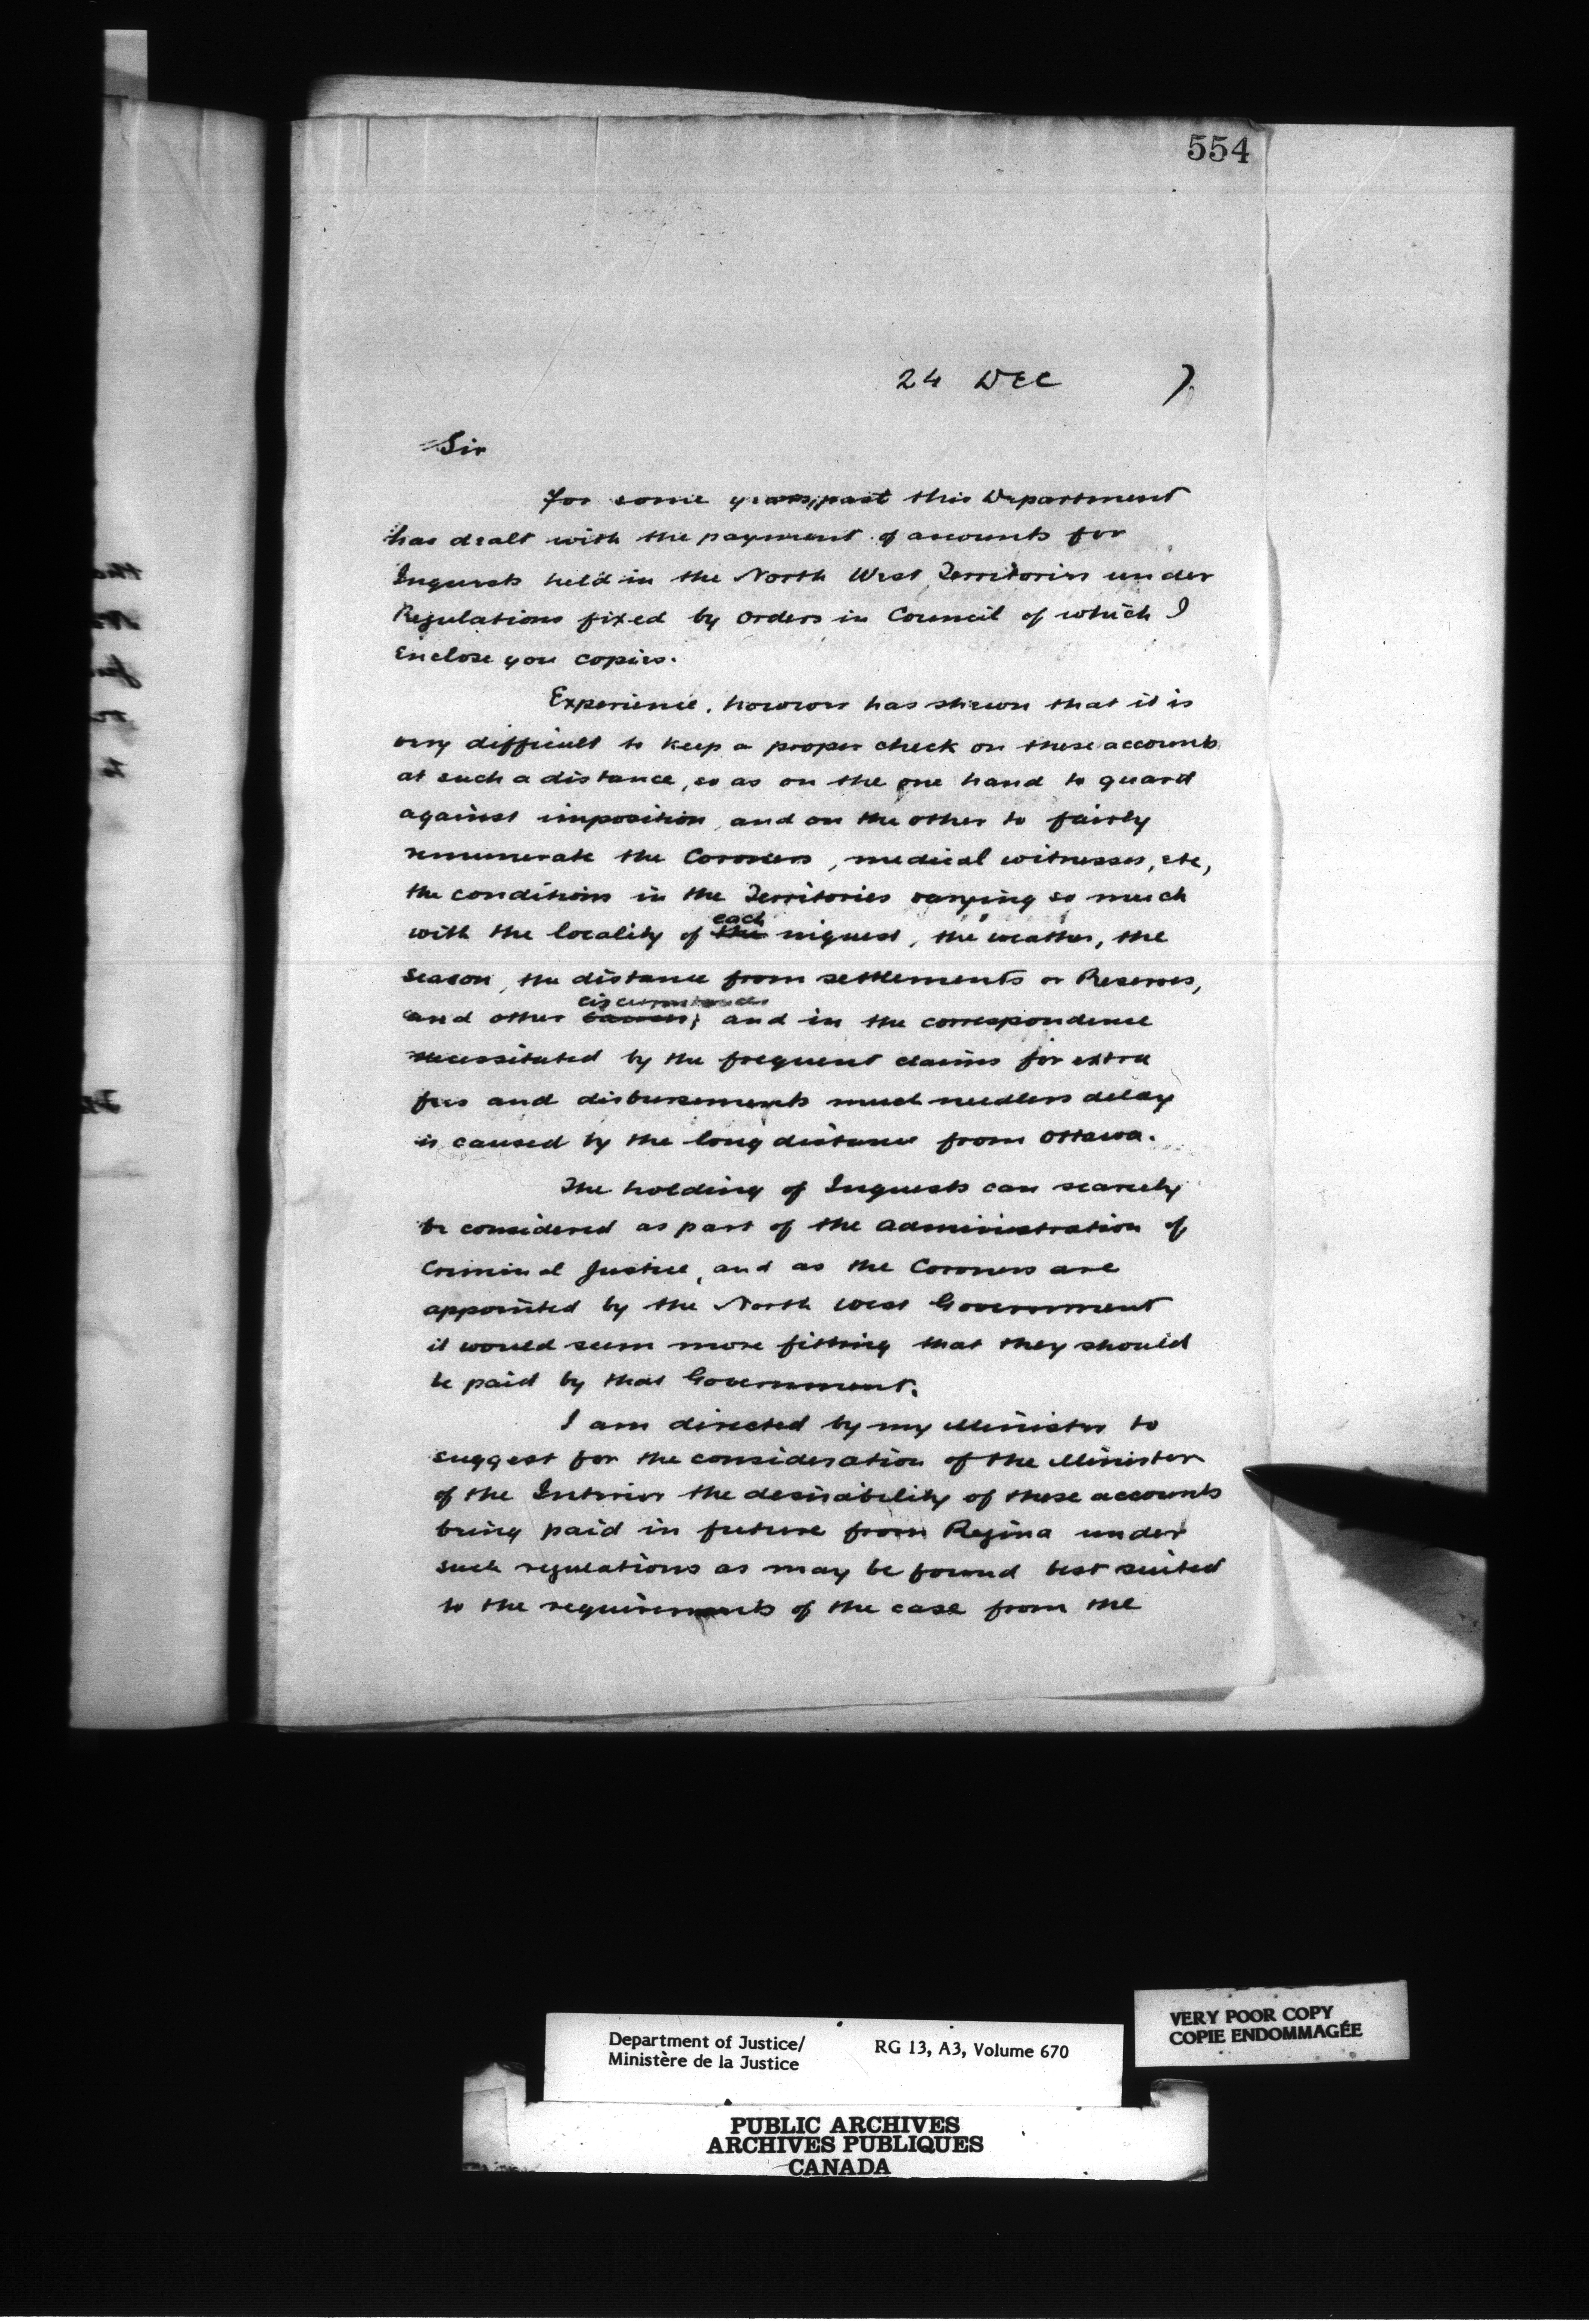 554
24 DEC 7
Sir
For some years past this Department
has dealt with the payment of accounts for
Inquests held in the North West Territories under
Regulations fixed by Orders in Council of which I
enclose you copies.
Experience, however has shewn that it is
very difficult to keep a proper check on these accounts
at such a distance, so as on the one hand to guard
against imposition, and on the other to fairly
remunerate the Coroners, medical witnesses, etc,
the conditions in the Territories varying so much
each
with the locality of the inquest, the weather, the
season, the distance from settlements or Reserves,
circumstances
and other causes; and in the correspondence
necessitated by the frequent claims for extra
fees and disbursements much needless delay
is caused by the long distance from Ottawa.
The holding of Inquests can scarcely
be considered as part of the administration of
Criminal Justice, and as the Coroners are
appointed by the North West Government
it would seem more fitting that they should
be paid by that Government.
I am directed by my Minister to
suggest for the consideration of the Minister
of the Interior the desirability of these accounts
being paid in future from Regina under
such regulations as may be found best suited
to the requirements of the case from the
Department of Justice/ RG 13, A3, Volume 670
Ministère de la Justice
VERY POOR COPY
COPIE ENDOMMAGÉE
PUBLIC ARCHIVES
ARCHIVES PUBLIQUES
CANADA